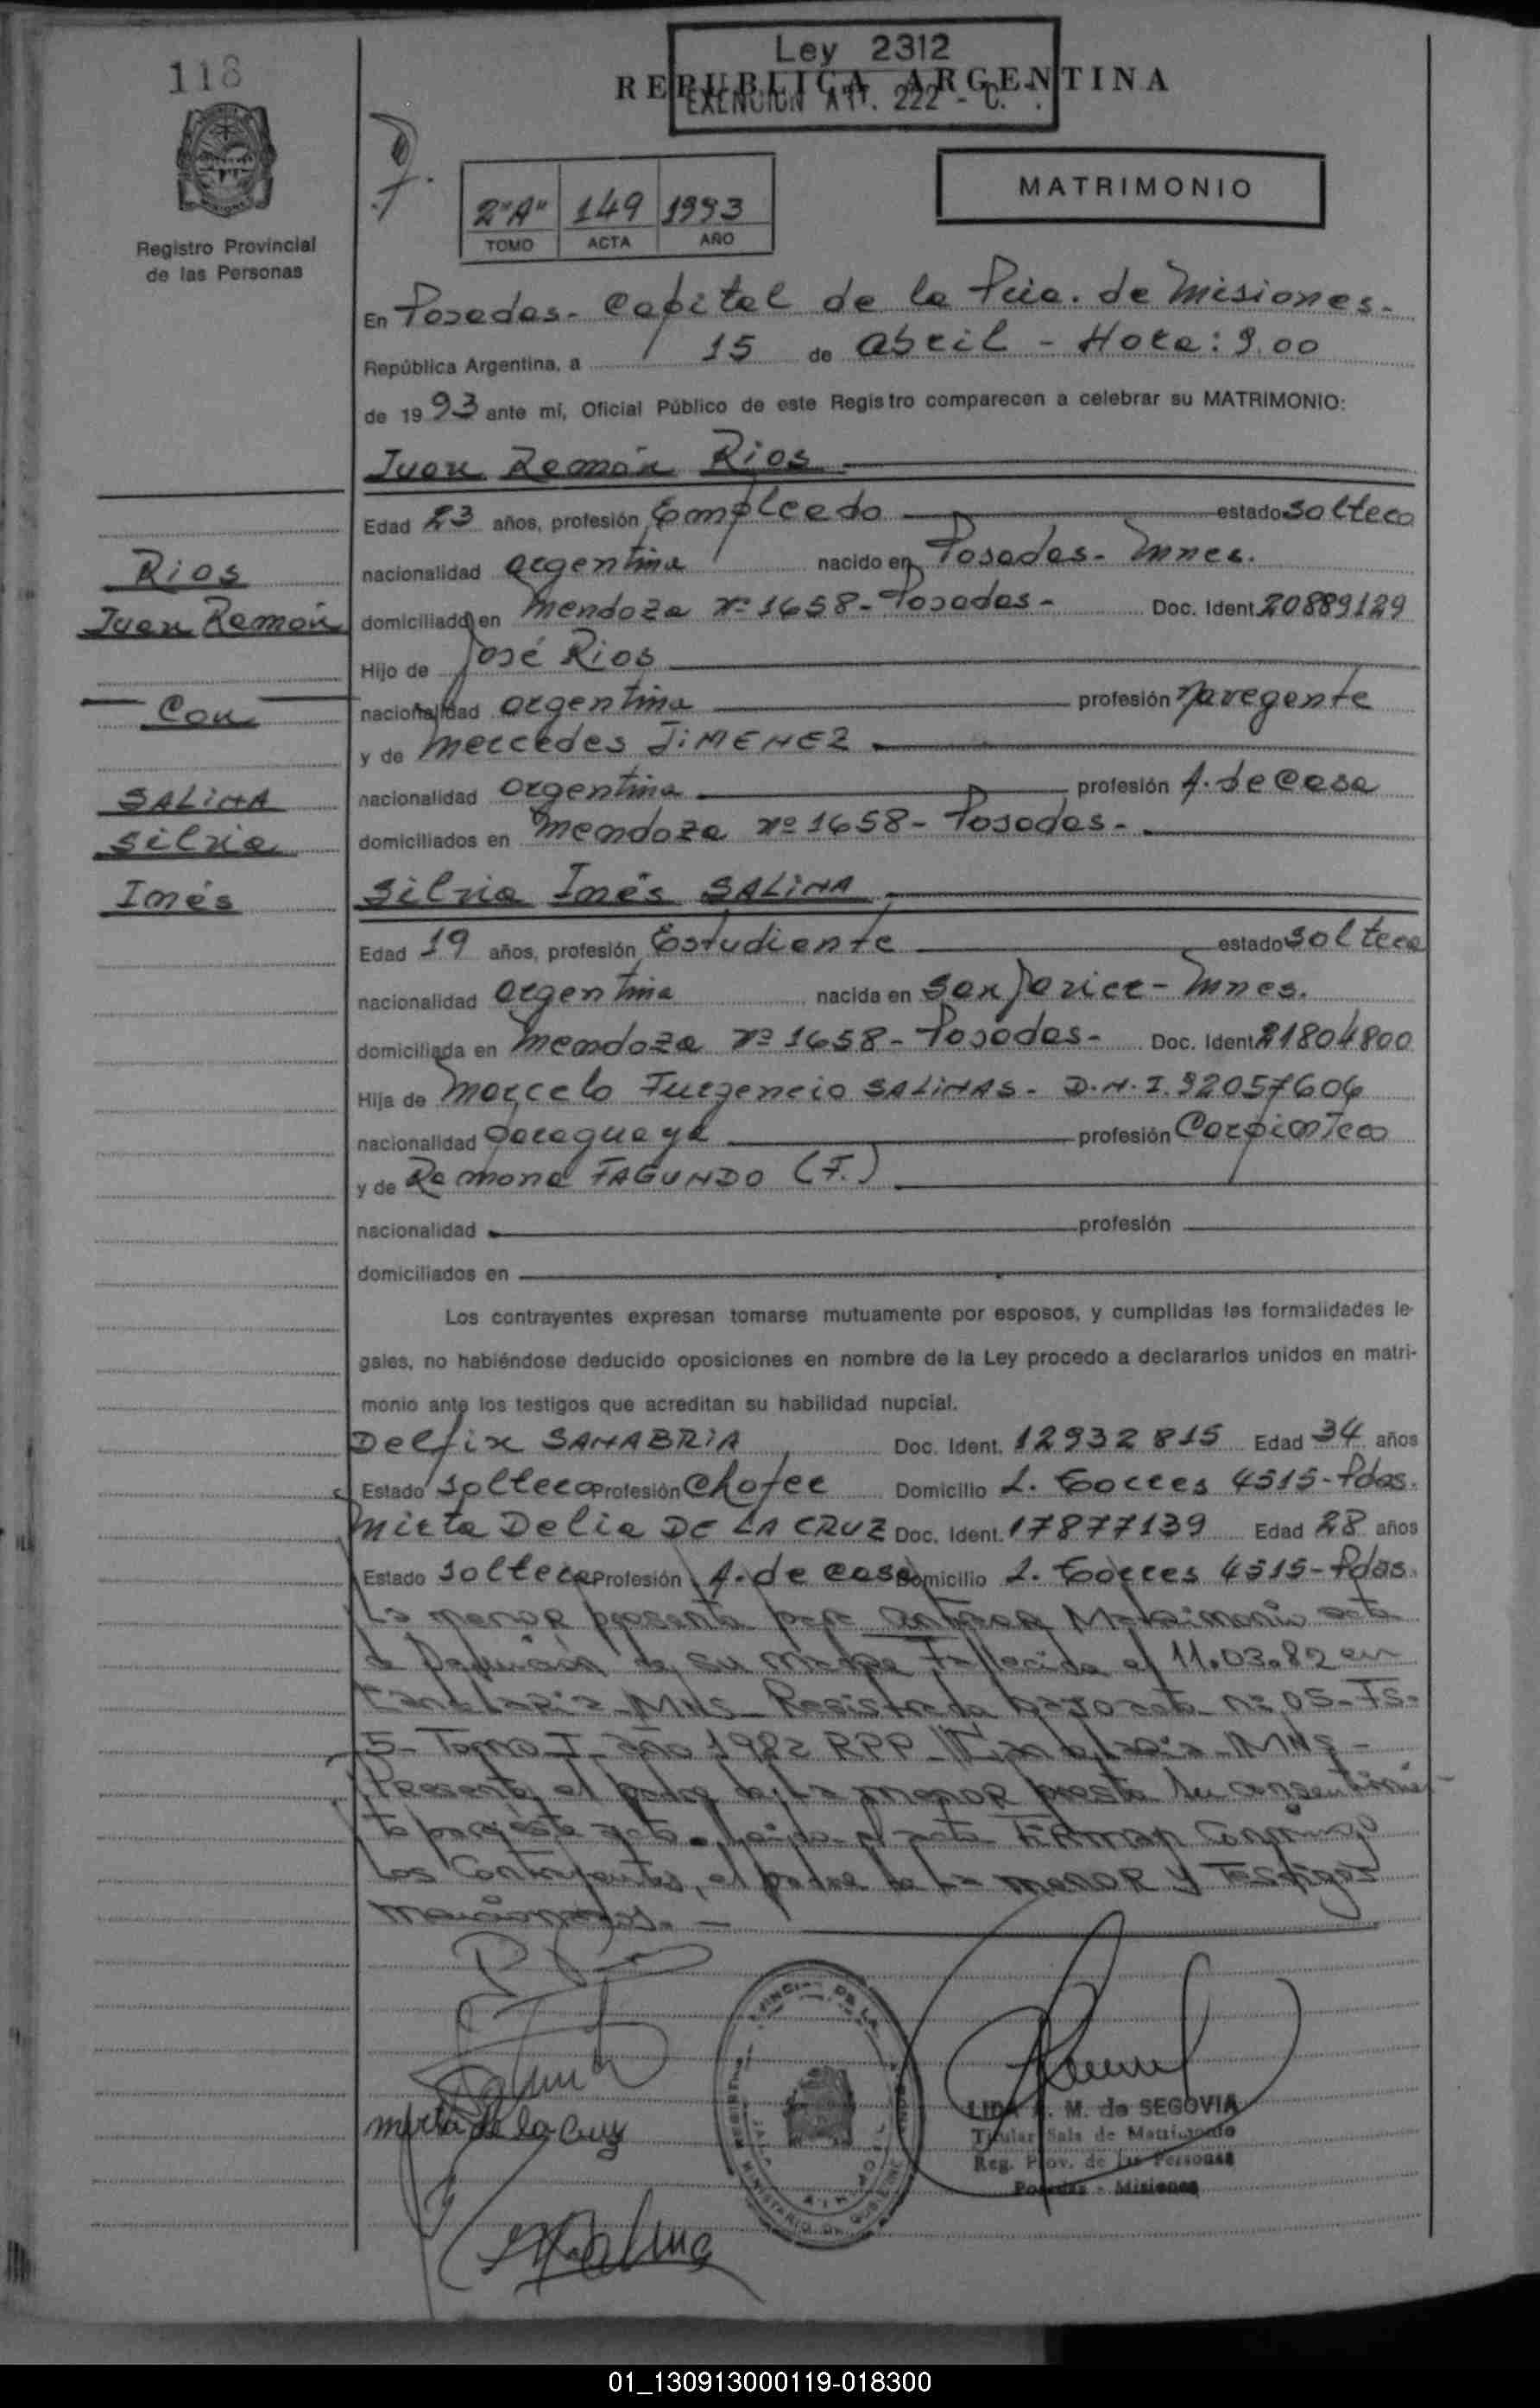 118
Ley 2312
REPUBLICA ARGENTINA
EXENCION Art. 222 - C.
Registro Provincial
de las Personas
2"A" 149 1993
TOMO ACTA AÑO
MATRIMONIO
En Posadas - Capital de la Pcia. de Misiones -
República Argentina, a 15 de abril - Hora: 9.00
de 1993 ante mí, Oficial Público de este Registro comparecen a celebrar su MATRIMONIO:
Juan Ramón Rios
Edad 23 años, profesión Empleado estado soltero
Rios
nacionalidad argentina nacido en Posadas - Mnes.
Juan Ramón
domiciliado en Mendoza Nº 1658 - Posadas - Doc. Ident. 20889129
Hijo de José Rios
Con
nacionalidad argentina profesión Navegante
y de Mercedes JIMENEZ
SALINA
nacionalidad argentina profesión A. de Casa
Silvia
domiciliados en Mendoza Nº 1658 - Posadas -
Inés
Silvia Inés SALINA
Edad 19 años, profesión Estudiante estado soltera
nacionalidad argentina nacida en San Javier - Mnes.
domiciliada en Mendoza Nº 1658 - Posadas - Doc. Ident. 21804800
Hija de Marcelo Fulgencio SALINAS - D.N.I. 92057606
nacionalidad paraguaya profesión Carpintero
y de Ramona FAGUNDO (F.)
nacionalidad profesión
domiciliados en
Los contrayentes expresan tomarse mutuamente por esposos, y cumplidas las formalidades le-
gales, no habiéndose deducido oposiciones en nombre de la Ley procedo a declararlos unidos en matri-
monio ante los testigos que acreditan su habilidad nupcial.
Delfin SANABRIA Doc. Ident. 12932815 Edad 34 años
Estado soltero Profesión Chofer Domicilio L. Torres 4515 - Pdas.
Mirta Delia DE LA CRUZ Doc. Ident. 17877139 Edad 28 años
Estado soltera Profesión A. de casa Domicilio L. Torres 4515 - Pdas.
La menor presenta para contraer Matrimonio acta
de Defunción de su madre Fallecida el 11.03.82 en
Candelaria - MNS - Registrada bajo acta nº 05 - Fs.
5 - Tomo I - año 1982 RPP - Candelaria - MNS -
Presente el padre de la menor presta su consentimien-
to para éste acto. Leida el acta Firman Conmigo
los Contrayentes, el padre de la menor y Testigos
mencionados. -
Mirta de la Cruz
LIDA M. de SEGOVIA
Titular Sala de Matrimonio
Reg. Prov. de las Personas
Posadas - Misiones
01_130913000119-018300